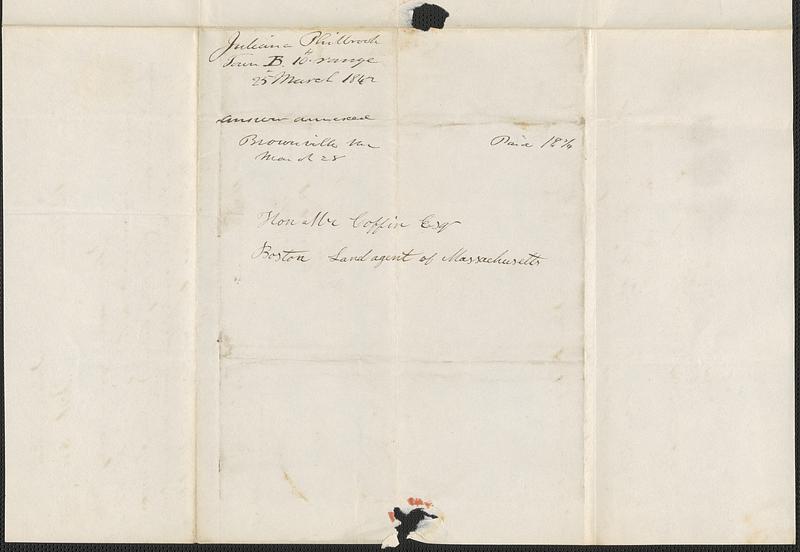 Juliana Philbrook
Town B. 10th range
25th March 1842
Answer annexed
Brownville Me
March 28
Paid 18¾
Hon Mr Coffin Esqr
Boston Land agent of Massachusetts